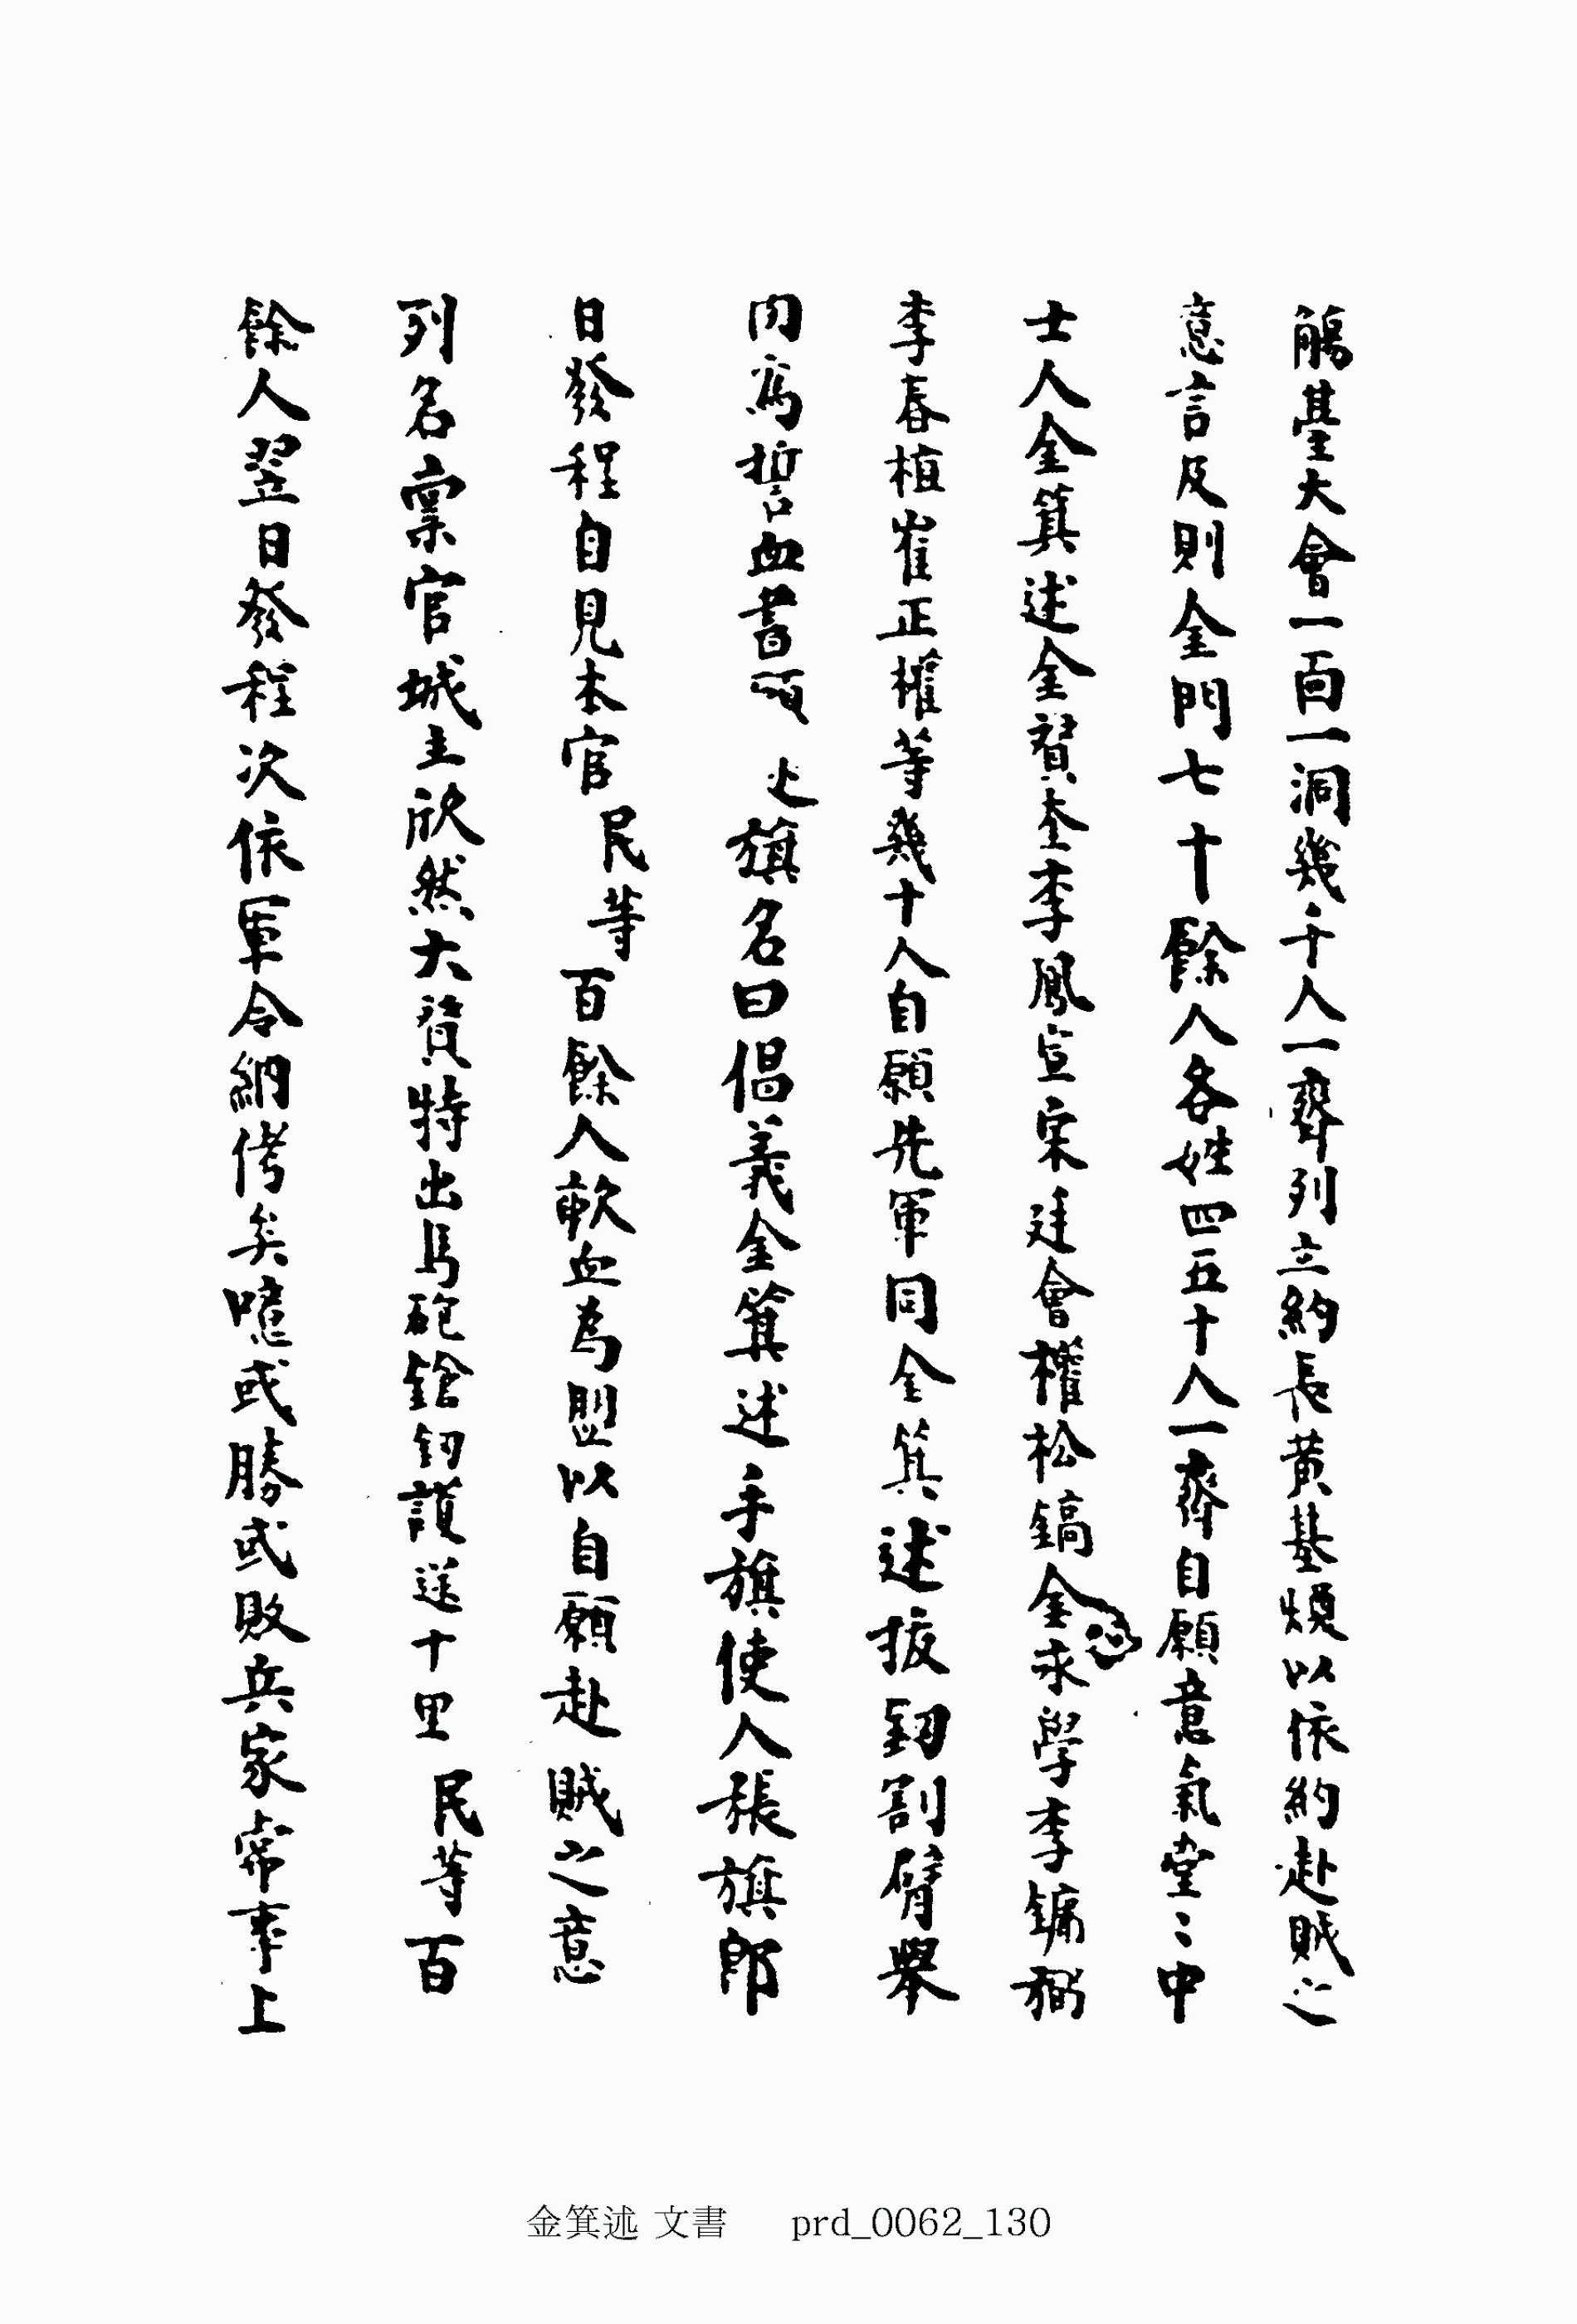 觴臺大會一百一洞幾千人一齊列立約長黃基煥以依約赴賊之
意言及則金門七十餘人各姓四五十人一齊自願意氣堂〻中
士人金箕述金贇奎李鳳宣宋廷會權松鎬金永學李鏞弼
李春植崔正權等幾十人自願先軍同金箕述拔釰割臂舉
內爲誓血書頭 旗名曰倡義金箕述手旗使人張旗郎
日發程自見本官 民等百餘人歃血爲盟以自願赴賊之意
列名稟官城主欣然大贊特出馬砲鎗釰護送十里 民等百
餘人翌日發程次依軍令納侤矣噫或勝或敗兵家常事上
金箕述 文書 prd_0062_130